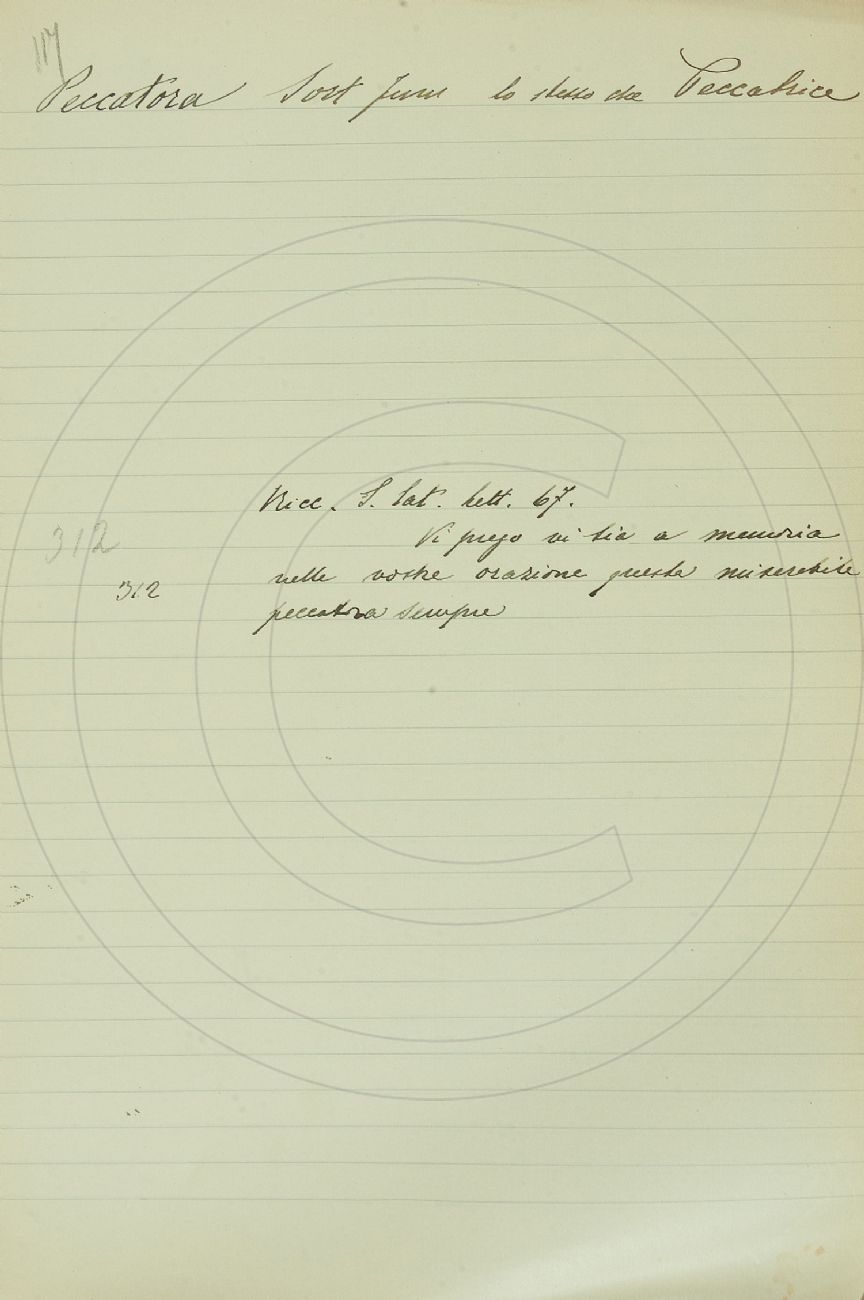 117
Peccatora Sost femm lo stesso che Peccatrice
Ricc. S. Cat. Lett. 67.
Vi prego vi sia a memoria
312
nelle vostre orazione questa miserebile
312
peccatora sempre